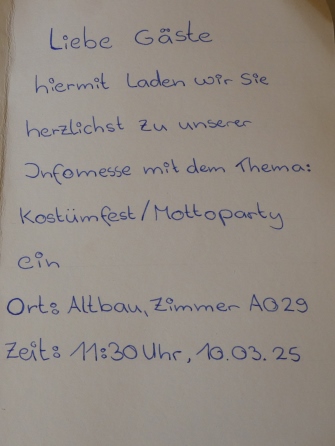 Liebe Gäste
hiermit Laden wir Sie
herzlichst zu unserer
Infomesse mit dem Thema:
Kostümfest/Mottoparty
ein
Ort: Altbau, Zimmer A029
Zeit: 11:30 Uhr, 10.03.25